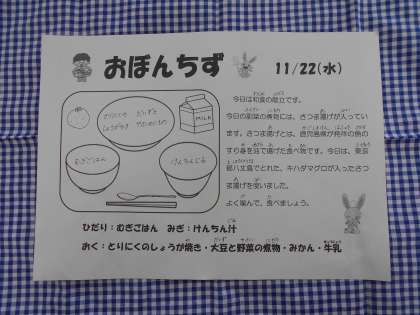 おぼんちず
11/22(水)
今日は和食の献立です。
今日の副菜の煮物には、さつま揚げが入ってい
ます。さつま揚げとは、鹿児島県が発祥の魚の
すり身を油で揚げた食べ物です。今日は、東京
都八丈島でとれた、キハダマグロが入ったさつ
ま揚げを使いました。
よく噛んで、食べましょう。
とりにくの
しょうがやき
だいずと
やさいのにもの
MILK
むぎごはん
けんちんじる
ひだり：むぎごはん みぎ：けんちん汁
おく：とりにくのしょうが焼き・大豆と野菜の煮物・みかん・牛乳